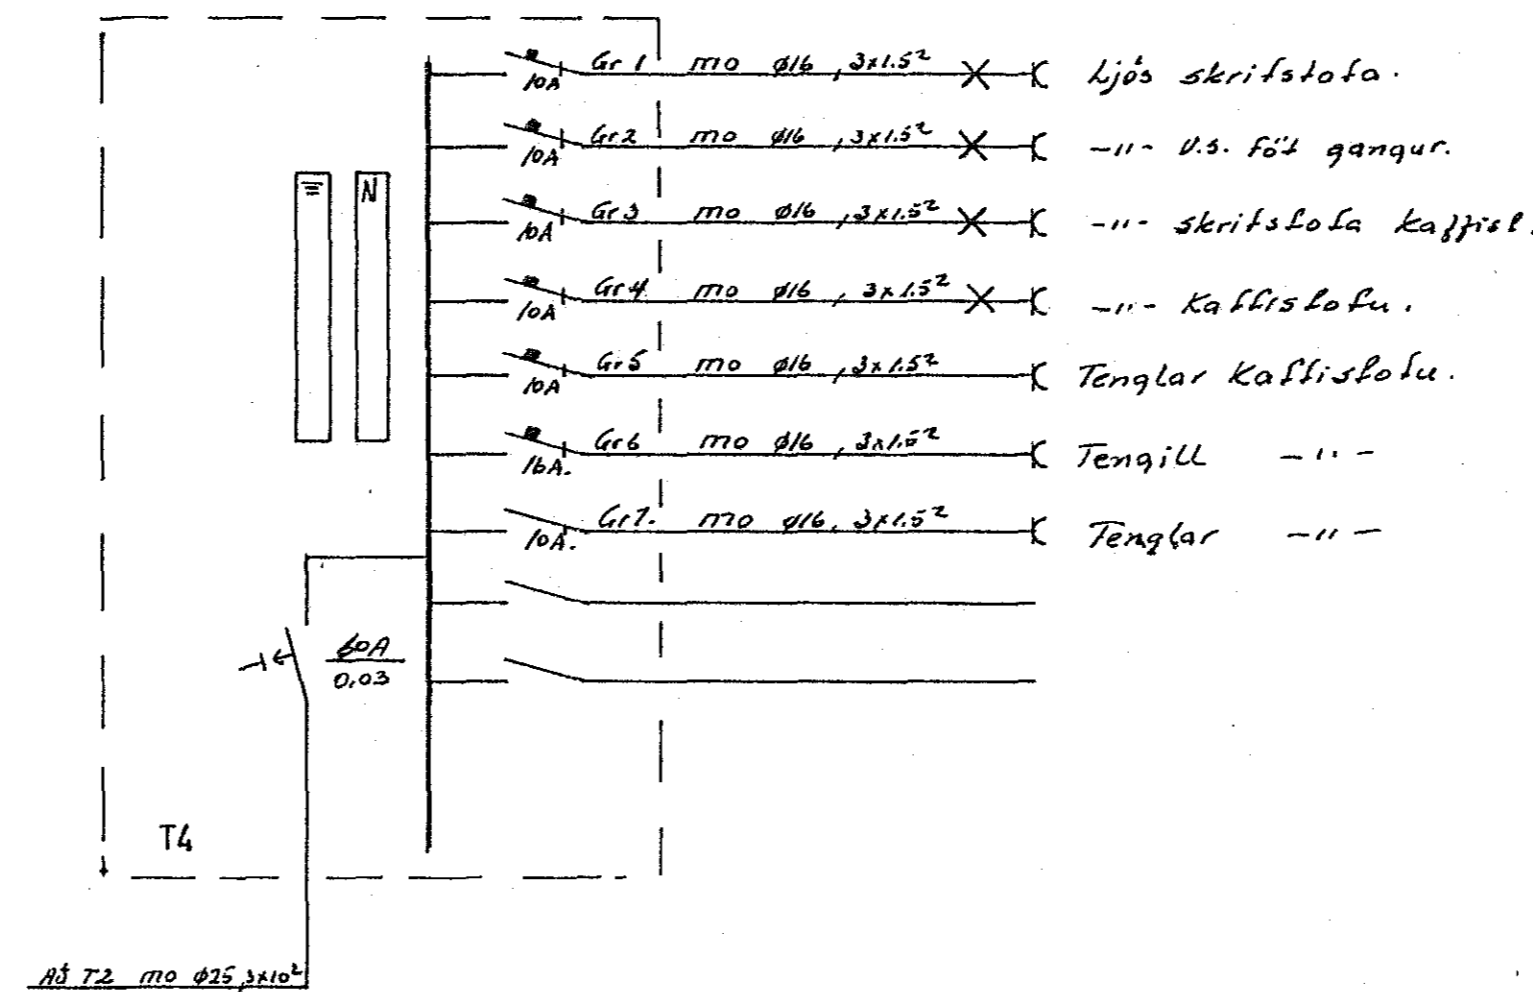 Gr 1 mo ø16, 3x1.5² Ljós skrifstofa.
10A
Gr 2 mo ø16, 3x1.5² -"- V.S. föt gangur.
10A
N
Gr 3 mo ø16, 3x1.5² -"- skrifstofa kaffist.
10A
Gr 4 mo ø16, 3x1.5² -"- Kaffistofu.
10A
Gr 5 mo ø16, 3x1.5² Tenglar Kaffistofu.
10A
Gr 6 mo ø16, 3x1.5² Tengill -"-
16A.
Gr 7. mo ø16, 3x1.5² Tenglar -"-
10A.
60A
0,03
T4
Að T2 mo ø25, 3x10²